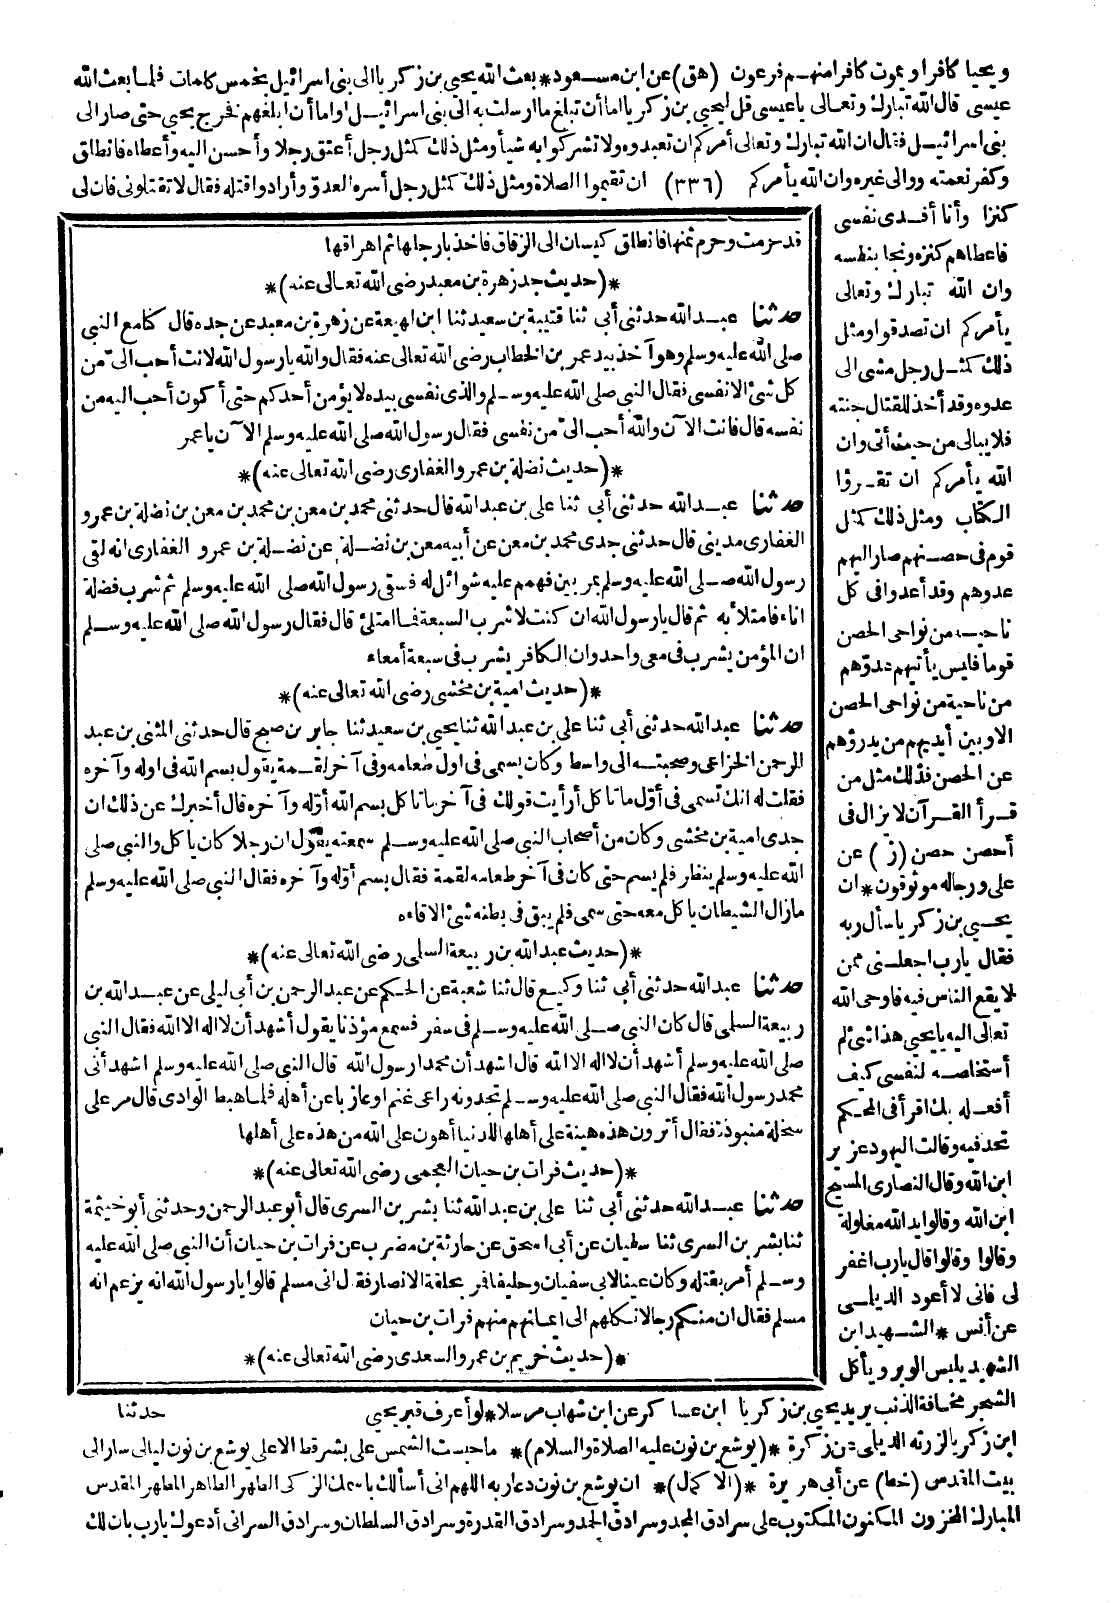 ويحيا كافرا ويموت كافرا منهم فرعون (هق) عن ابن مسعود * بعث الله يحيى بن زكريا الى بنى اسرائيل بخمس كلمات فلما بعث الله
عيسى قال الله تبارك وتعالى يا عيسى قل ليحيى بن زكريا اما أن تبلغ ما ارسلت به الى بنى اسرائيل اواما أن ابلغهم فخرج يحيى حتى صار الى
بنى اسرائيل فقال ان الله تبارك وتعالى أمركم ان تعبدوه ولا تشركوا به شيأ ومثل ذلك كمثل رجل أعتق رجلا وأحسن اليه وأعطاه فانطلق
وكفر نعمته ووالى غيره وان الله يأمركم (٣٣٦) ان تقيموا الصلاة ومثل ذلك كمثل رجل أسره العدو وأرادوا قتله فقال لا تقتلونى فان لى
كنزا وأنا أفدى نفسى
فاعطاهم كنزه ونجا بنفسه
وان الله تبارك وتعالى
يأمركم ان تصدقوا ومثل
ذلك كمثل رجل مشى الى
عدوه وقد أخذ للقتال جنته
فلا يبالى من حيث أتى وان
الله يأمركم ان تقرؤا
الكتاب ومثل ذلك كمثل
قوم فى حصنهم صار اليهم
عدوهم وقد أعدوا فى كل
ناحية من نواحى الحصن
قوما فليس يأتيهم عدوهم
من ناحية من نواحى الحصن
الاوبين أيديهم من يدرؤهم
عن الحصن فذلك مثل من
قرأ القرآن لا يزال فى
أحصن حصن (ز) عن
على ورجاله موثوقون * ان
يحيى بن زكريا سأل ربه
فقال يارب اجعلنى ممن
لا يقع الناس فيه فاوحى الله
تعالى اليه يا يحيى هذا شئ لم
أستخلصه لنفسى كيف
أفعله بك اقرأ فى المحكم
تجد فيه وقالت اليهود عزير
ابن الله وقال النصارى المسيح
ابن الله وقالوا يد الله مغلولة
وقالوا وقالوا قال يارب اغفر
لى فانى لا أعود الديلى
عن أنس * الشهيد ابن
الشهيد يلبس الوبر ويأكل
الشجر مخافة الذنب يريد يحيى بن زكريا ابن عساكر عن ابن شهاب مرسلا * لو أعرف قبر يحيى
ابن زكريا لزرته الديلى عن زكرة * (يوشع بن نون عليه الصلاة والسلام) * ما حبست الشمس على بشر قط الا على يوشع بن نون ليالى سار الى
بيت المقدس (خط) عن أبى هريرة * (الاكمال) * ان يوشع بن نون دعا ربه اللهم انى أسألك باسمك الزكى الطهر الطاهر المطهر المقدس
المبارك المخزون المكنون المكتوب على سرادق المجد وسرادق الحمد وسرادق القدرة وسرادق السلطان وسرادق السرائر أدعوك يارب بان لك
قد حرمت وحرم ثمنها فانطلق كيسان الى الزقاق فاخذ بارجلها ثم اهراقها
* (حديث جد زهرة بن معبد رضى الله تعالى عنه) *
حدثنا عبد الله حدثنى أبى ثنا قتيبة بن سعيد ثنا ابن لهيعة عن زهرة بن معبد عن جده قال كنا مع النبى
صلى الله عليه وسلم وهو آخذ بيد عمر بن الخطاب رضى الله تعالى عنه فقال والله يا رسول الله لانت أحب الىّ من
كل شئ الا نفسى فقال النبى صلى الله عليه وسلم والذى نفسى بيده لا يؤمن أحدكم حتى أكون أحب اليه من
نفسه قال فانت الآن والله أحب الىّ من نفسى فقال رسول الله صلى الله عليه وسلم الآن يا عمر
* (حديث نضلة بن عمرو الغفارى رضى الله تعالى عنه) *
حدثنا عبد الله حدثنى أبى ثنا على بن عبد الله قال حدثنى محمد بن معن بن محمد بن معن بن نضلة بن عمرو
الغفارى مدينى قال حدثنى جدى محمد بن معن عن أبيه معن بن نضلة عن نضلة بن عمرو الغفارى انه لقى
رسول الله صلى الله عليه وسلم بمر بين فهجم عليه شوائل له فسقى رسول الله صلى الله عليه وسلم ثم شرب فضلة
اناء فامتلأ به ثم قال يا رسول الله ان كنت لاشرب السبعة فما امتلئ قال فقال رسول الله صلى الله عليه وسلم
ان المؤمن يشرب فى معى واحد وان الكافر يشرب فى سبعة أمعاء
* (حديث امية بن مخشى رضى الله تعالى عنه) *
حدثنا عبد الله حدثنى أبى ثنا على بن عبد الله ثنا يحيى بن سعيد ثنا جابر بن صبح قال حدثنى المثنى بن عبد
الرحمن الخزاعى وصحبته الى واسط وكان يسمى فى اول طعامه وفى آخر لقمة يقول بسم الله فى اوله وآخره
فقلت له انك تسمى فى أول ما تأكل أرأيت قولك فى آخر ما تأكل بسم الله أوله وآخره قال أخبرك عن ذلك ان
جدى امية بن مخشى وكان من أصحاب النبى صلى الله عليه وسلم سمعته يقول ان رجلا كان يأكل والنبى صلى
الله عليه وسلم ينظر فلم يسم حتى كان فى آخر طعامه لقمة فقال بسم الله أوله وآخره فقال النبى صلى الله عليه وسلم
مازال الشيطان يأكل معه حتى سمى فلم يبق فى بطنه شئ الا قاءه
* (حديث عبد الله بن ربيعة السلمى رضى الله تعالى عنه) *
حدثنا عبد الله حدثنى أبى ثنا وكيع قال ثنا شعبة عن الحكم عن عبد الرحمن بن أبى ليلى عن عبد الله بن
ربيعة السلمى قال كان النبى صلى الله عليه وسلم فى سفر فسمع مؤذنا يقول أشهد أن لا اله الا الله فقال النبى
صلى الله عليه وسلم أشهد أن لا اله الا الله قال اشهد أن محمدا رسول الله قال النبى صلى الله عليه وسلم اشهد أنى
محمد رسول الله فقال النبى صلى الله عليه وسلم تجدونه راعى غنم او عازبا عن أهله فلما هبط الوادى قال مر على
سخلة منبوذة فقال أترون هذه هينة على أهلها للدنيا أهون على الله من هذه على أهلها
* (حديث فرات بن حيان العجمى رضى الله تعالى عنه) *
حدثنا عبد الله حدثنى أبى ثنا على بن عبد الله ثنا بشر بن السرى قال أبو عبد الرحمن وحدثنى أبو خيثمة
ثنا بشر بن السرى ثنا سفيان عن أبى اسحق عن حارثة بن مضرب عن فرات بن حيان أن النبى صلى الله عليه
وسلم أمر بقتله وكان عينا لابى سفيان وحليفا فمر بحلقة الانصار فقال انى مسلم قالوا يا رسول الله انه يزعم انه
مسلم فقال ان منكم رجالا نكلهم الى ايمانهم منهم فرات بن حيان
* (حديث خريم بن عمرو السعدى رضى الله تعالى عنه) *
حدثنا